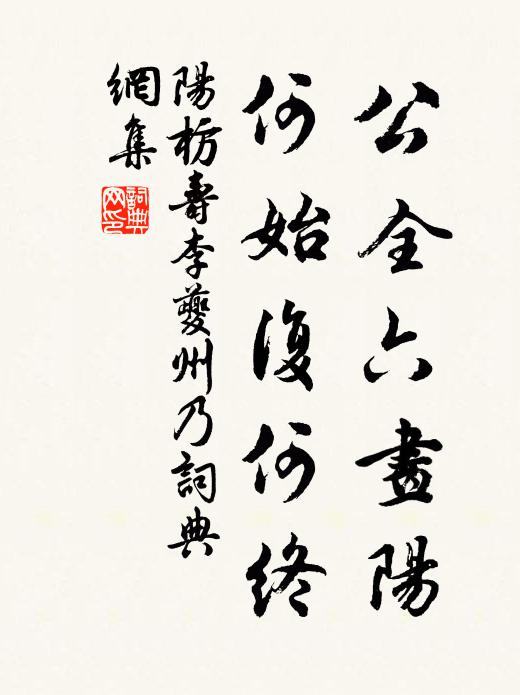 公全六畫陽
何始復何終
陽枋壽李夔州乃詞典
網集
詞典
网印